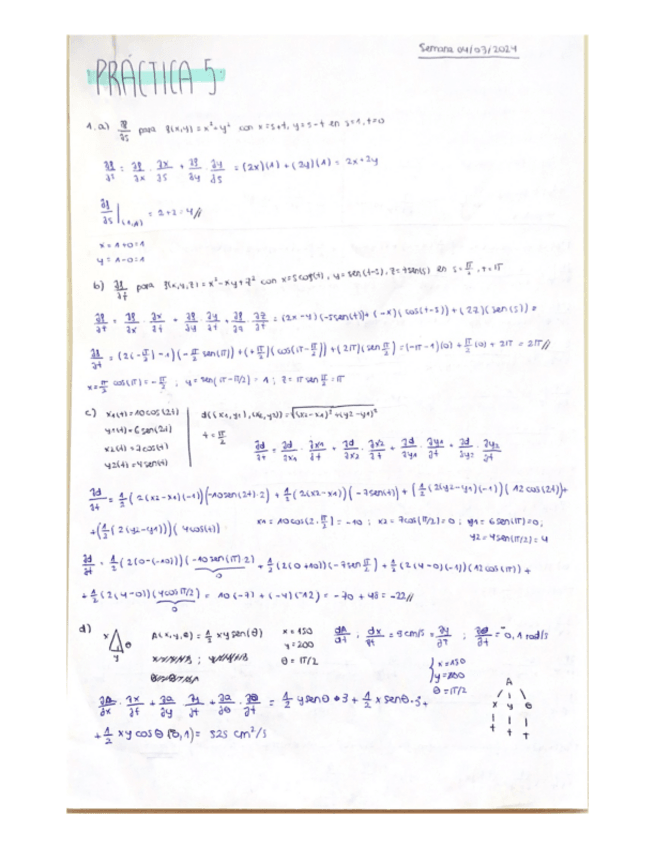 Semana 04/03/2024
PRÁCTICA 5
1. a) ∂f/∂s para f(x,y) = x²+y² con x=s+t, y=s-t en s=1, t=0
∂f/∂s = ∂f/∂x · ∂x/∂s + ∂f/∂y · ∂y/∂s = (2x)(1) + (2y)(1) = 2x+2y
= 2+2 = 4//
x = 1+0 = 1
y = 1-0 = 1
b) ∂f/∂t para f(x,y,z) = x²-xy+z² con x=s cos(t), y=sen(t-s), z=t sen(s) en s=π/2, t=π
∂f/∂t = ∂f/∂x · ∂x/∂t + ∂f/∂y · ∂y/∂t + ∂f/∂z · ∂z/∂t = (2x-y)(-s sen(t)) + (-x)(cos(t-s)) + (2z)(sen(s)) =
∂f/∂t = (2(-π/2)-1)(-π/2 sen(π)) + (+π/2)(cos(π-π/2)) + (2π)(sen π/2) = (-π-1)(0) + π/2(0) + 2π = 2π//
x = π/2 cos(π) = -π/2 ; y = sen(π-π/2) = 1 ; z = π sen π/2 = π
c) x1(t) = 10cos(2t) d((x1,y1),(x2,y2)) = √(x2-x1)²+(y2-y1)²
y1(t) = 6sen(2t) t = π/2
x2(t) = 7cos(t) ∂d/∂t = ∂d/∂x1 · ∂x1/∂t + ∂d/∂x2 · ∂x2/∂t + ∂d/∂y1 · ∂y1/∂t + ∂d/∂y2 · ∂y2/∂t
y2(t) = 4sen(t)
∂d/∂t = 1/2 (2(x2-x1)(-1))(-10sen(2t)·2) + 1/2 (2(x2-x1))(-7sen(t)) + (1/2 (2(y2-y1)(-1))(12cos(2t))+
+(1/2 (2(y2-y1)))(4cos(t)) x1 = 10cos(2·π/2) = -10 ; x2 = 7cos(π/2) = 0 ; y1 = 6sen(π) = 0;
y2 = 4sen(π/2) = 4
∂d/∂t = 1/2 (2(0-(-10))(-10sen(π)·2) + 1/2 (2(0+10))(-7sen π/2) + 1/2 (2(4-0)(-1))(12cos(π)) +
0
+ 1/2 (2(4-0))(4cos π/2) = 10(-7) + (-4)(-12) = -70+48 = -22//
0
d) x y θ A(x,y,θ) = 1/2 xy sen(θ) x = 150 ∂A/∂t ; ∂x/∂t = 3cm/s = ∂y/∂t ; ∂θ/∂t = -0,1 rad/s
y = 200
θ = π/2
x = 150
y = 200
θ = π/2
∂A/∂x · ∂x/∂t + ∂a/∂y · ∂y/∂t + ∂a/∂θ · ∂θ/∂t = 1/2 y senθ · 3 + 1/2 x senθ · 3 +
A
x y θ
t t t
+ 1/2 xy cosθ (-0,1) = 525 cm²/s